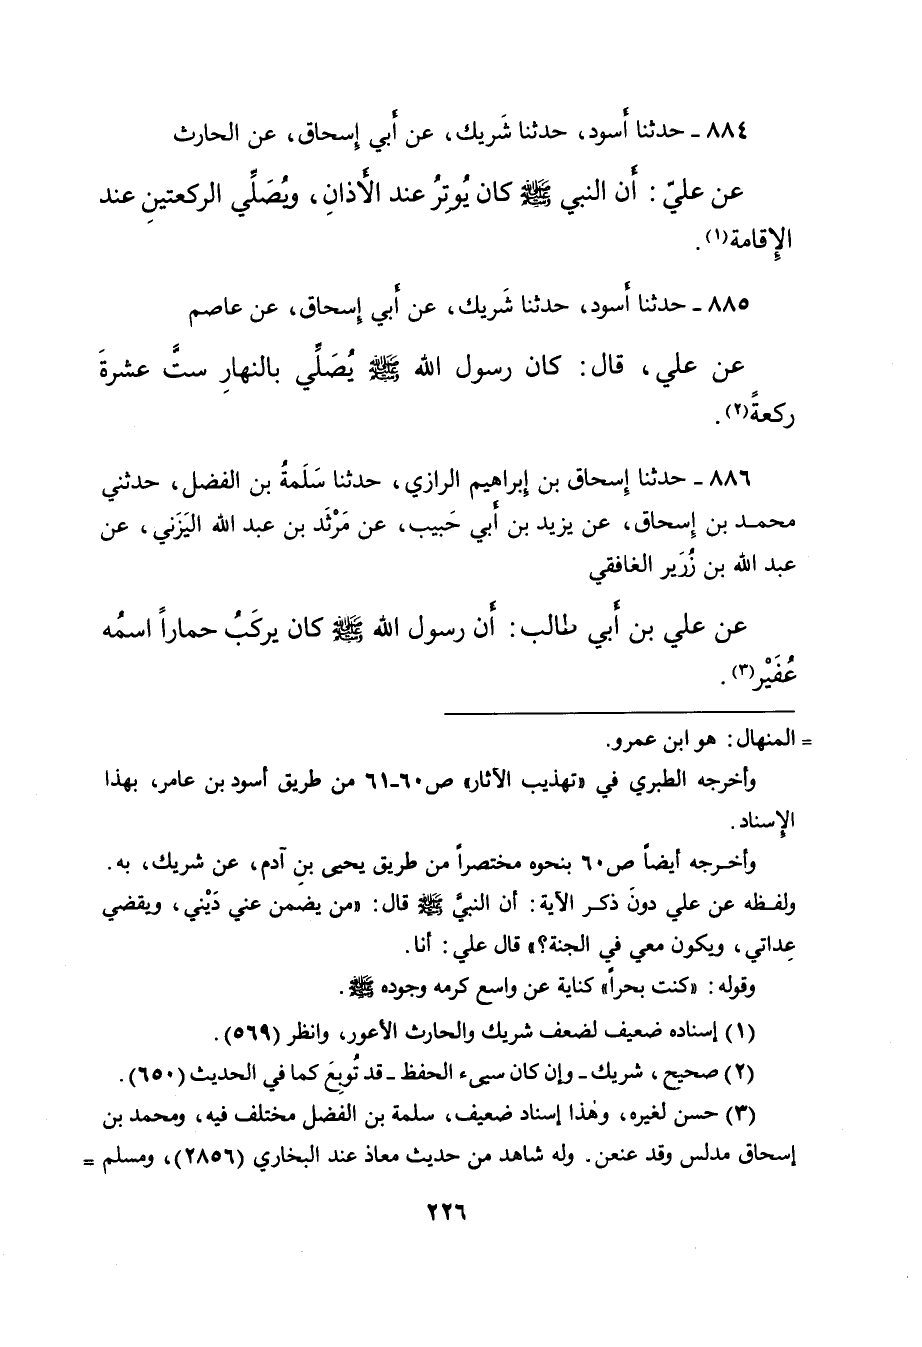 ٨٨٤ ـ حدثنا أَسود، حدثنا شَريك، عن أَبي إِسحاق، عن الحارث
عن عليّ : أَن النبي ﷺ كان يُوتِرُ عند الأَذانِ، ويُصَلِّي الركعتينِ عند
الإِقامة(١).
٨٨٥ ـ حدثنا أَسود، حدثنا شَريك، عن أَبي إِسحاق، عن عاصم
عن علي، قال: كان رسول الله ﷺ يُصَلِّي بالنهارِ ستَّ عشرةَ
ركعةً(٢).
٨٨٦ ـ حدثنا إِسحاق بن إِبراهيم الرازي، حدثنا سَلَمةُ بن الفضل، حدثني
محمد بن إِسحاق، عن يزيد بن أَبي حَبيب، عن مَرْثَد بن عبد الله اليَزَني، عن
عبد الله بن زُرَير الغافقي
عن علي بن أَبي طالب: أَن رسول الله ﷺ كان يركَبُ حماراً اسمُه
عُفَيْر(٣).
= المنهال: هو ابن عمرو.
وأخرجه الطبري في «تهذيب الآثار» ص٦٠ـ٦١ من طريق أسود بن عامر، بهذا
الإِسناد.
وأخرجه أيضاً ص٦٠ بنحوه مختصراً من طريق يحيى بنِ آدم، عن شريك، به.
ولفظه عن علي دونَ ذكر الآية: أن النبيَّ ﷺ قال: «من يضمن عني دَيْني، ويقضي
عِداتي، ويكون معي في الجنة؟» قال علي: أنا.
وقوله: «كنت بحراً» كناية عن واسع كرمه وجوده ﷺ.
(١) إسناده ضعيف لضعف شريك والحارث الأعور، وانظر (٥٦٩).
(٢) صحيح، شريك ـ وإن كان سيىء الحفظ ـ قد تُوبِعَ كما في الحديث (٦٥٠).
(٣) حسن لغيره، وهٰذا إسناد ضعيف، سلمة بن الفضل مختلف فيه، ومحمد بن
إسحاق مدلس وقد عنعن. وله شاهد من حديث معاذ عند البخاري (٢٨٥٦)، ومسلم =
٢٢٦